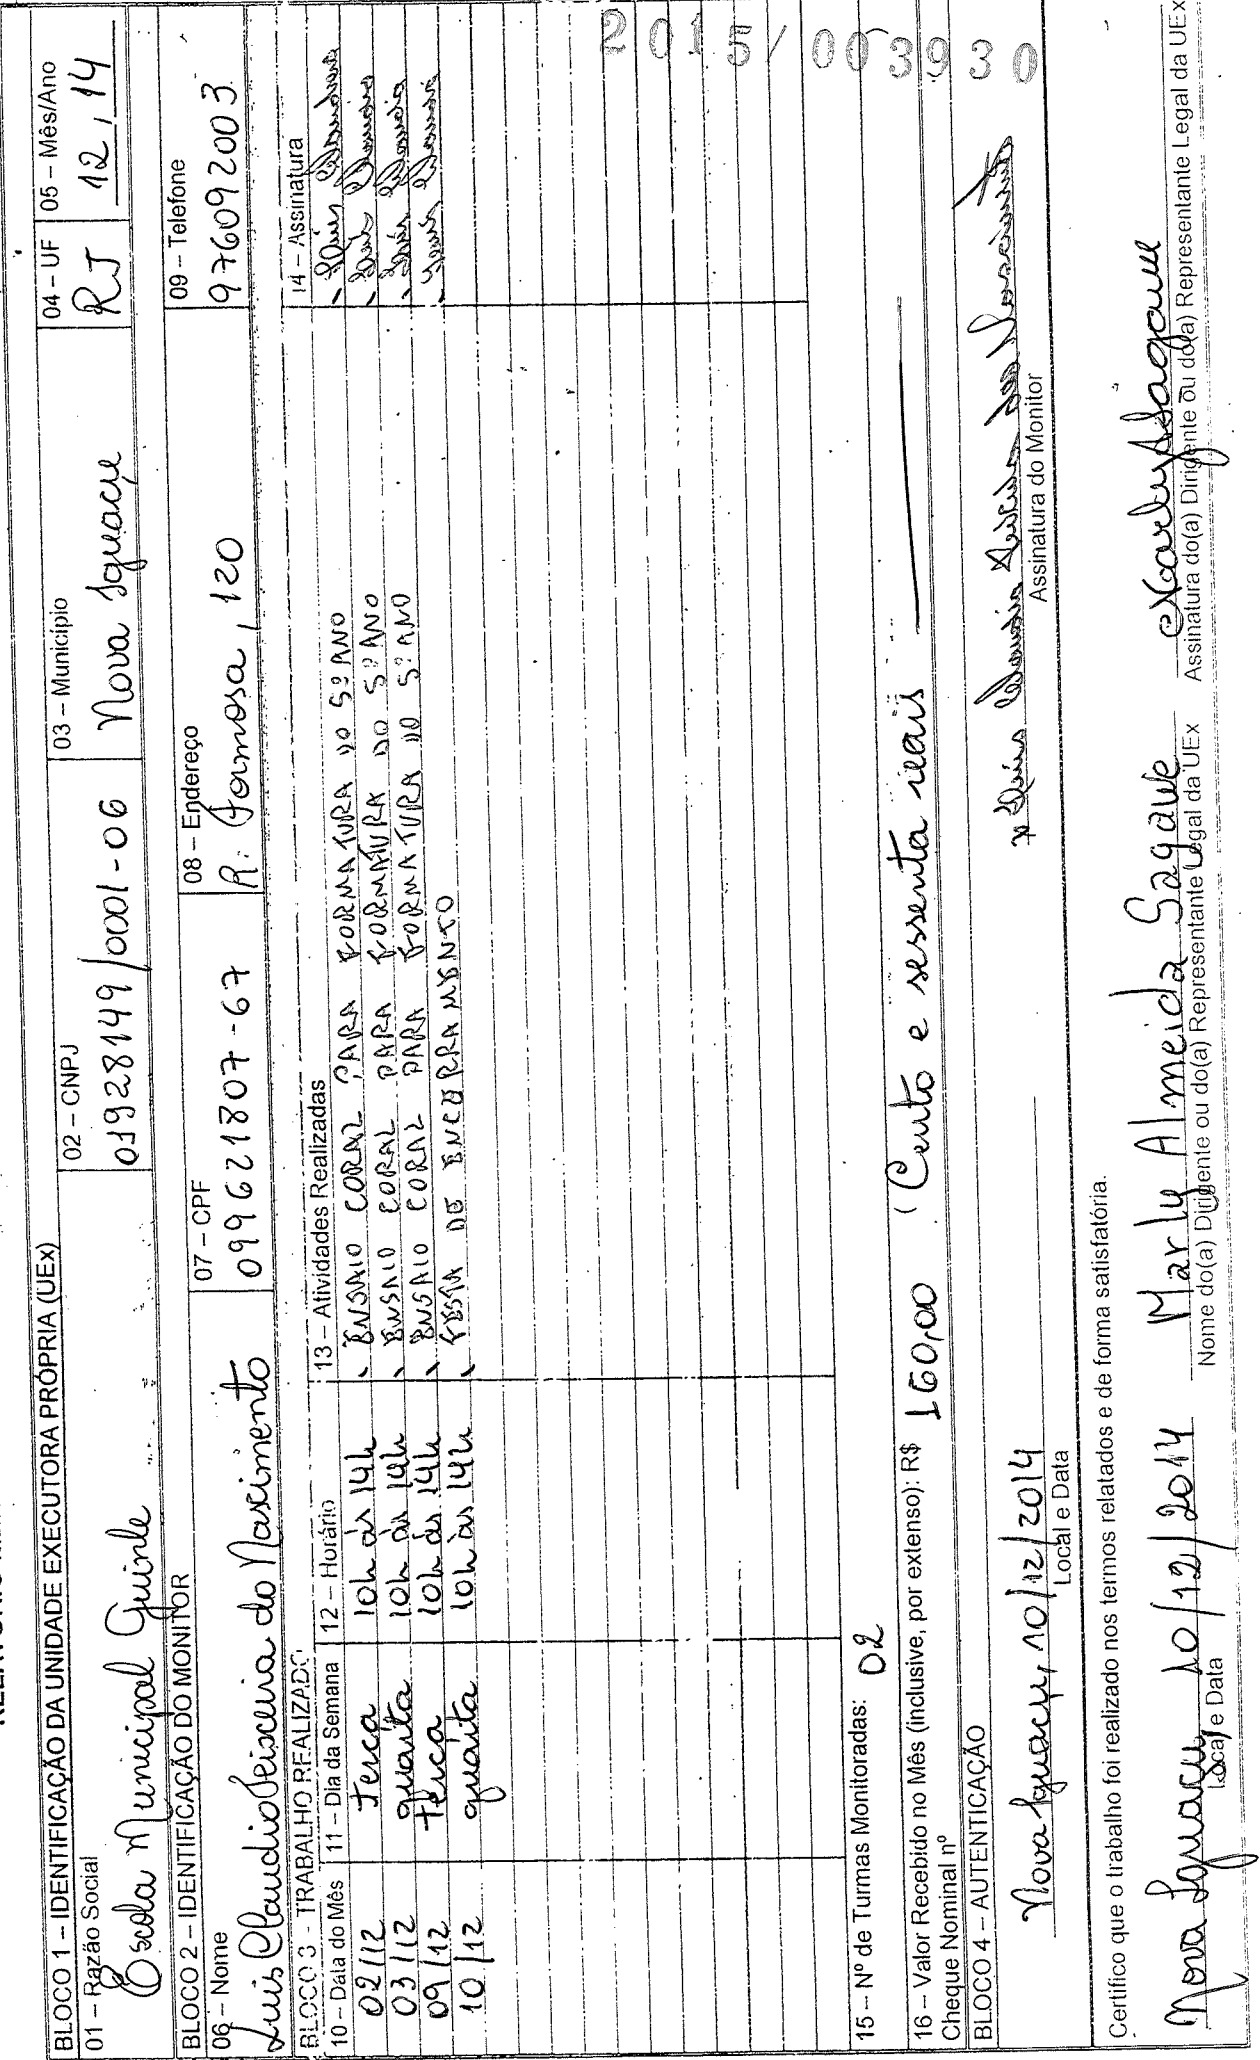 BLOCO 1 – IDENTIFICAÇÃO DA UNIDADE EXECUTORA PRÓPRIA (UEx)
01 – Razão Social
Escola Municipal Guinle
02 – CNPJ
01928149/0001-06
03 – Município
Nova Iguaçu
04 – UF
RJ
05 – Mês/Ano
12, 14
BLOCO 2 – IDENTIFICAÇÃO DO MONITOR
06 – Nome
Luis Claudio Teixeira do Nascimento
07 – CPF
099621807-67
08 – Endereço
R. Formosa, 120
09 – Telefone
976092003
BLOCO 3 – TRABALHO REALIZADO
10 – Data do Mês 11 – Dia da Semana 12 – Horário 13 – Atividades Realizadas 14 – Assinatura
02/12 Terca 10h às 14h ENSAIO CORAL PARA FORMATURA DO 5º ANO
03/12 quarta 10h às 14h ENSAIO CORAL PARA FORMATURA DO 5º ANO
09/12 Terca 10h às 14h ENSAIO CORAL PARA FORMATURA DO 5º ANO
10/12 quarta 10h às 14h FESTA DE ENCERRAMENTO
2015/003930
15 – Nº de Turmas Monitoradas: 02
16 – Valor Recebido no Mês (inclusive, por extenso): R$ 160,00 (Cento e sessenta reais
Cheque Nominal nº
BLOCO 4 – AUTENTICAÇÃO
Nova Iguaçu, 10/12/2014
Local e Data
Assinatura do Monitor
Certifico que o trabalho foi realizado nos termos relatados e de forma satisfatória.
Nova Iguaçu 10/12/2014 Marly Almeida Sagawe
Local e Data
Nome do(a) Dirigente ou do(a) Representante Legal da UEx
Assinatura do(a) Dirigente ou do(a) Representante Legal da UEx